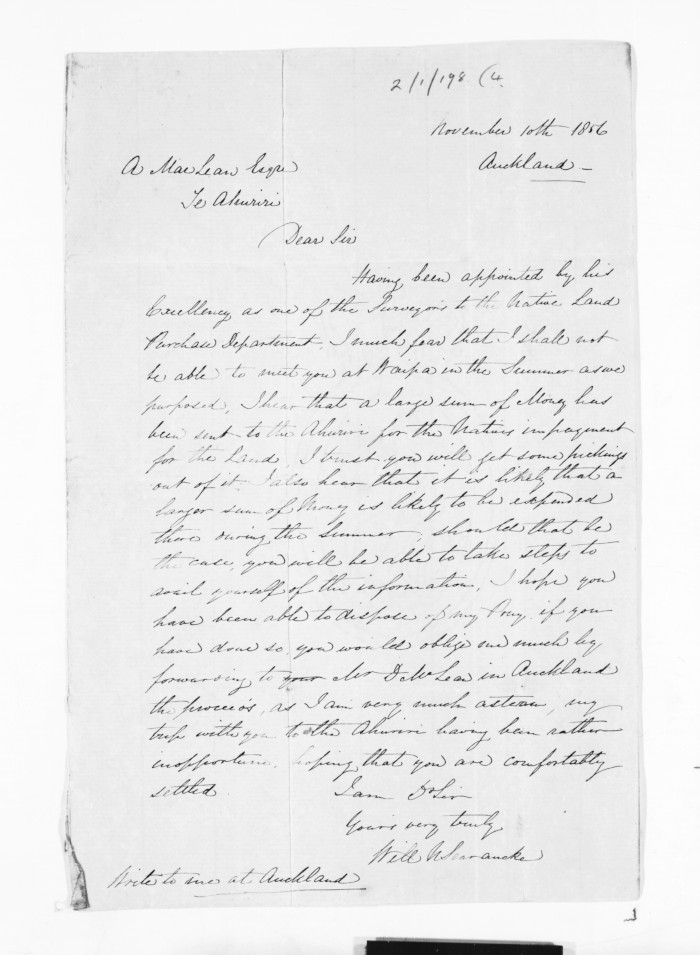 2/1/198 (4.
November 10th 1856
Auckland —
A MacLean Esqre
Te Ahuriri
Dear Sir
Having been appointed by his
Excellency as one of the Surveyors to the Native Land
Purchase Department, I much fear that I shall not
be able to meet you at Waipa in the Summer as we
purposed, I hear that a large sum of Money has
been sent to the Ahuriri for the Natives in payment
for the Land, I trust you will get some pickings
out of it. I also hear that it is likely that a
larger sum of Money is likely to be expended
there during the Summer, should that be
the case, you will be able to take steps to
avail yourself of the information, I hope you
have been able to dispose of my Pony, if you
have done so, you would oblige me much by
forwarding to your Mr D McLean in Auckland
the proceeds, as I am very much, my
trip with you to the Ahuriri having been rather
inopportune, hoping that you are comfortably
settled.
I am Dr Sir
Yours very truly
Will N Searancke
Write to me at Auckland